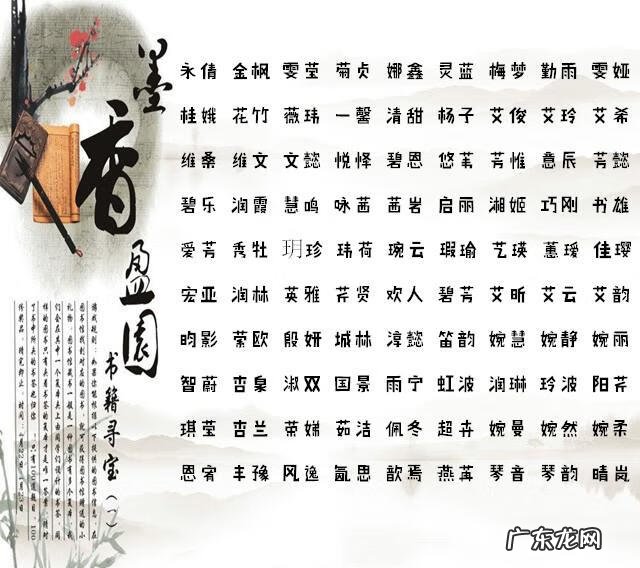 墨香盈園
书籍寻宝（一）
永倩 金枫 雯莹 菊贞 娜鑫 灵蓝 梅梦 勤雨 雯娅
桂娥 花竹 薇玮 一馨 清甜 杨子 艾俊 艾玲 艾希
维桑 维文 文懿 悦怿 碧恩 悠苇 芳惟 意辰 芳懿
碧乐 润霞 慧鸣 咏茜 茜岩 启丽 湘姬 巧刚 书雄
爱芳 秀牡 玥珍 玮荷 琬云 瑕瑜 艺瑛 蕙瑷 佳璎
宏亚 润林 英雅 芹贤 欢人 碧芳 艾昕 艾云 艾韵
昀影 荣欧 殷妍 城林 淳懿 笛韵 婉慧 婉静 婉丽
智蔚 杏枭 淑双 国景 雨宁 虹波 润琳 玲波 阳芹
琪莹 杏兰 荣娣 茹洁 佩冬 超卉 婉曼 婉然 婉柔
恩宥 丰豫 风逸 氤思 歆焉 燕苒 琴音 琴韵 晴岚
广东龙网